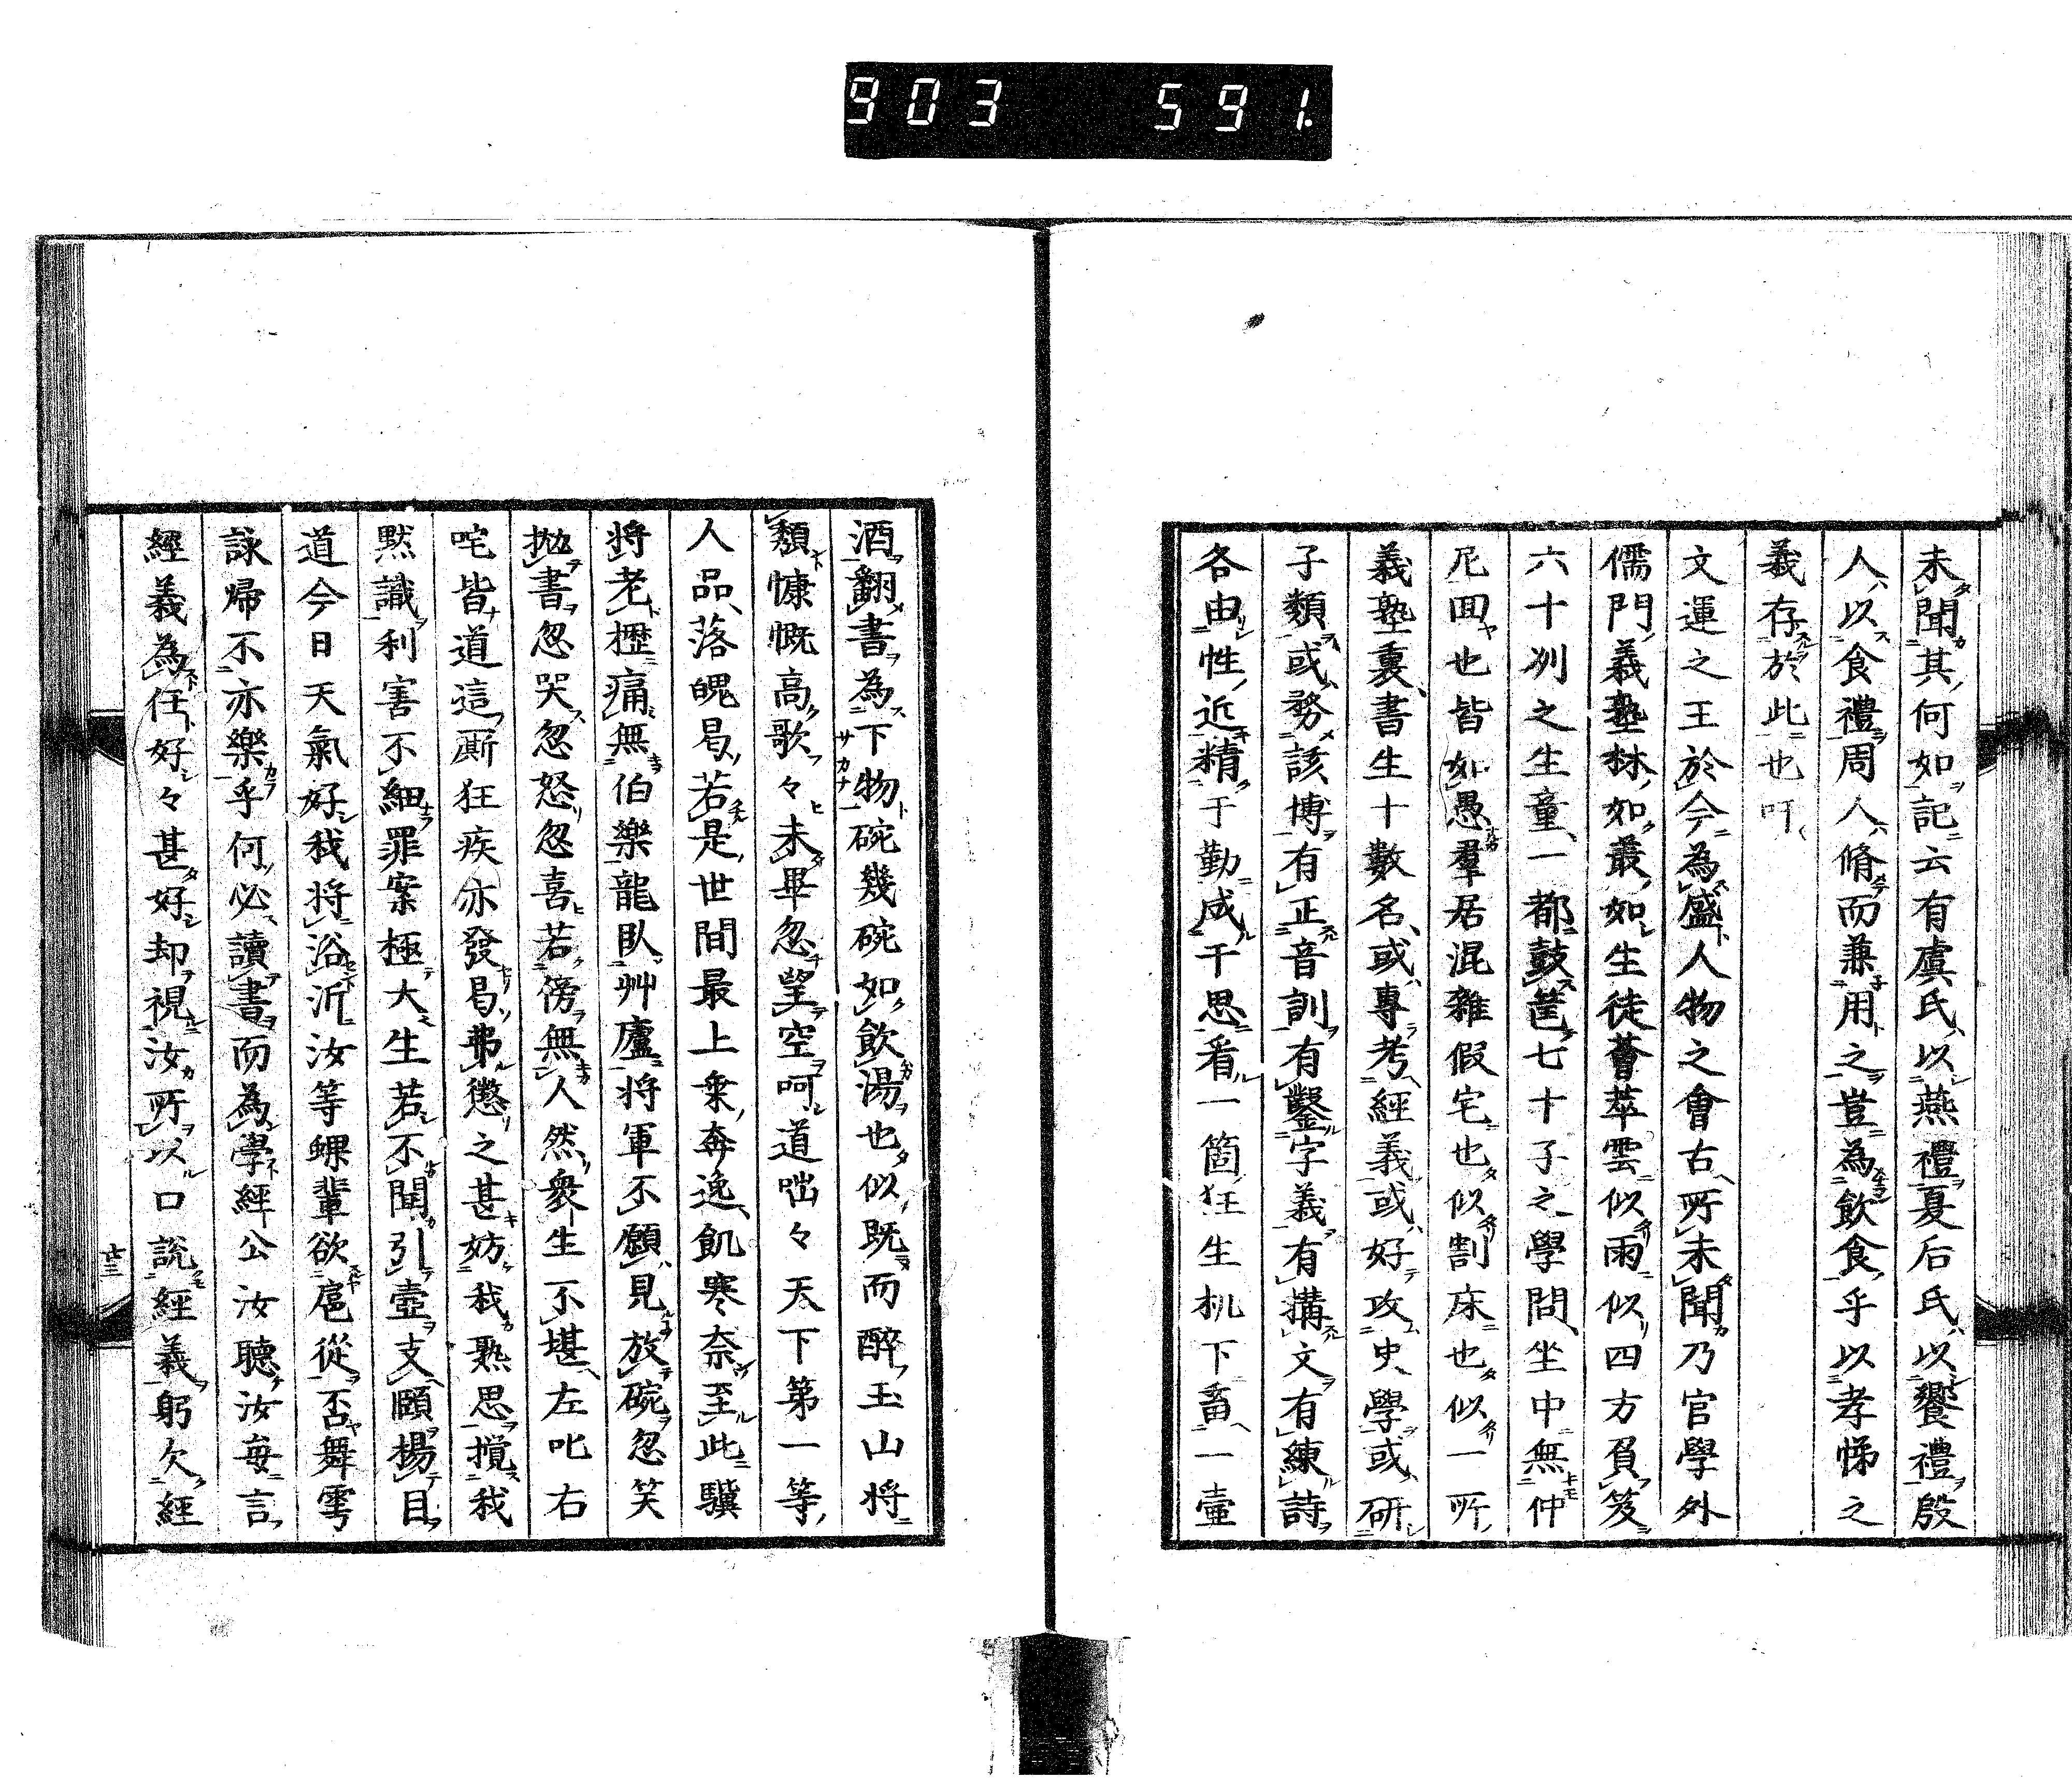 903 591.
未聞其何如記云有虞氏以燕禮夏后氏以饗禮殷
人以食禮周人脩而兼用之豈為飲食乎以孝悌之
義存於此也呵
文運之王於今為盛人物之會古所未聞乃官學外
儒門義塾林如叢如生徒薈萃雲似雨似四方負笈
六十列之生童一都鼓篋七十子之學問坐中無仲
尼回也皆如愚羣居混雜假宅也似割床也似一所
義塾裏書生十數名或專考經義或好攻史學或研
子類或務該博有正音訓有鑿字義有搆文有練詩
各由性近精于勤成于思看一箇狂生机下畜一壷
酒翻書為下物碗幾碗如飲湯也似既而醉玉山将
頽慷慨高歌々未畢忽望空呵道咄々天下第一等
人品落魄曷若是世間最上乗奔逸飢寒奈至此驥
将老櫪痛無伯樂龍臥艸廬将軍不願見放碗忽笑
拋書忽哭忽怒忽喜若傍無人然衆生不堪左叱右
咤皆道這厮狂疾亦發曷弗懲之甚妨我熟思攪我
黙識利害不細罪案極大生若不聞引壺支頤揚目
道今日天氣好我将浴沂汝等螺輩欲扈從否舞雩
詠帰不亦樂乎何必讀書而為學經公汝聽汝毎言
經義為任好々甚好却視汝所以口說經義躬欠經
廿三